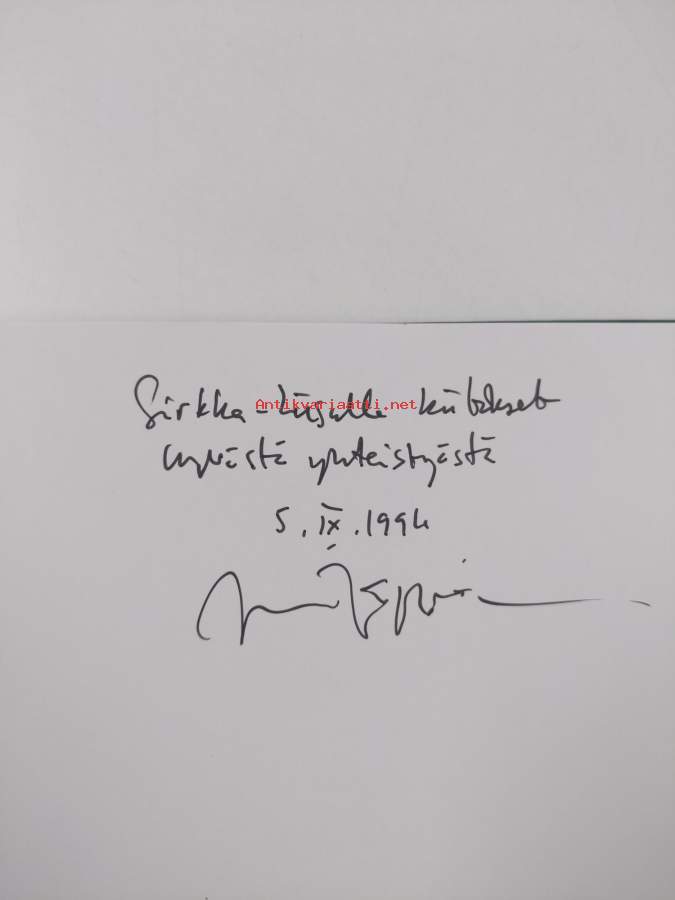 Sirkka-Liisalle kiitokset
Antikvariaatti.net
hyvästä yhteistyöstä
5. IX. 1994